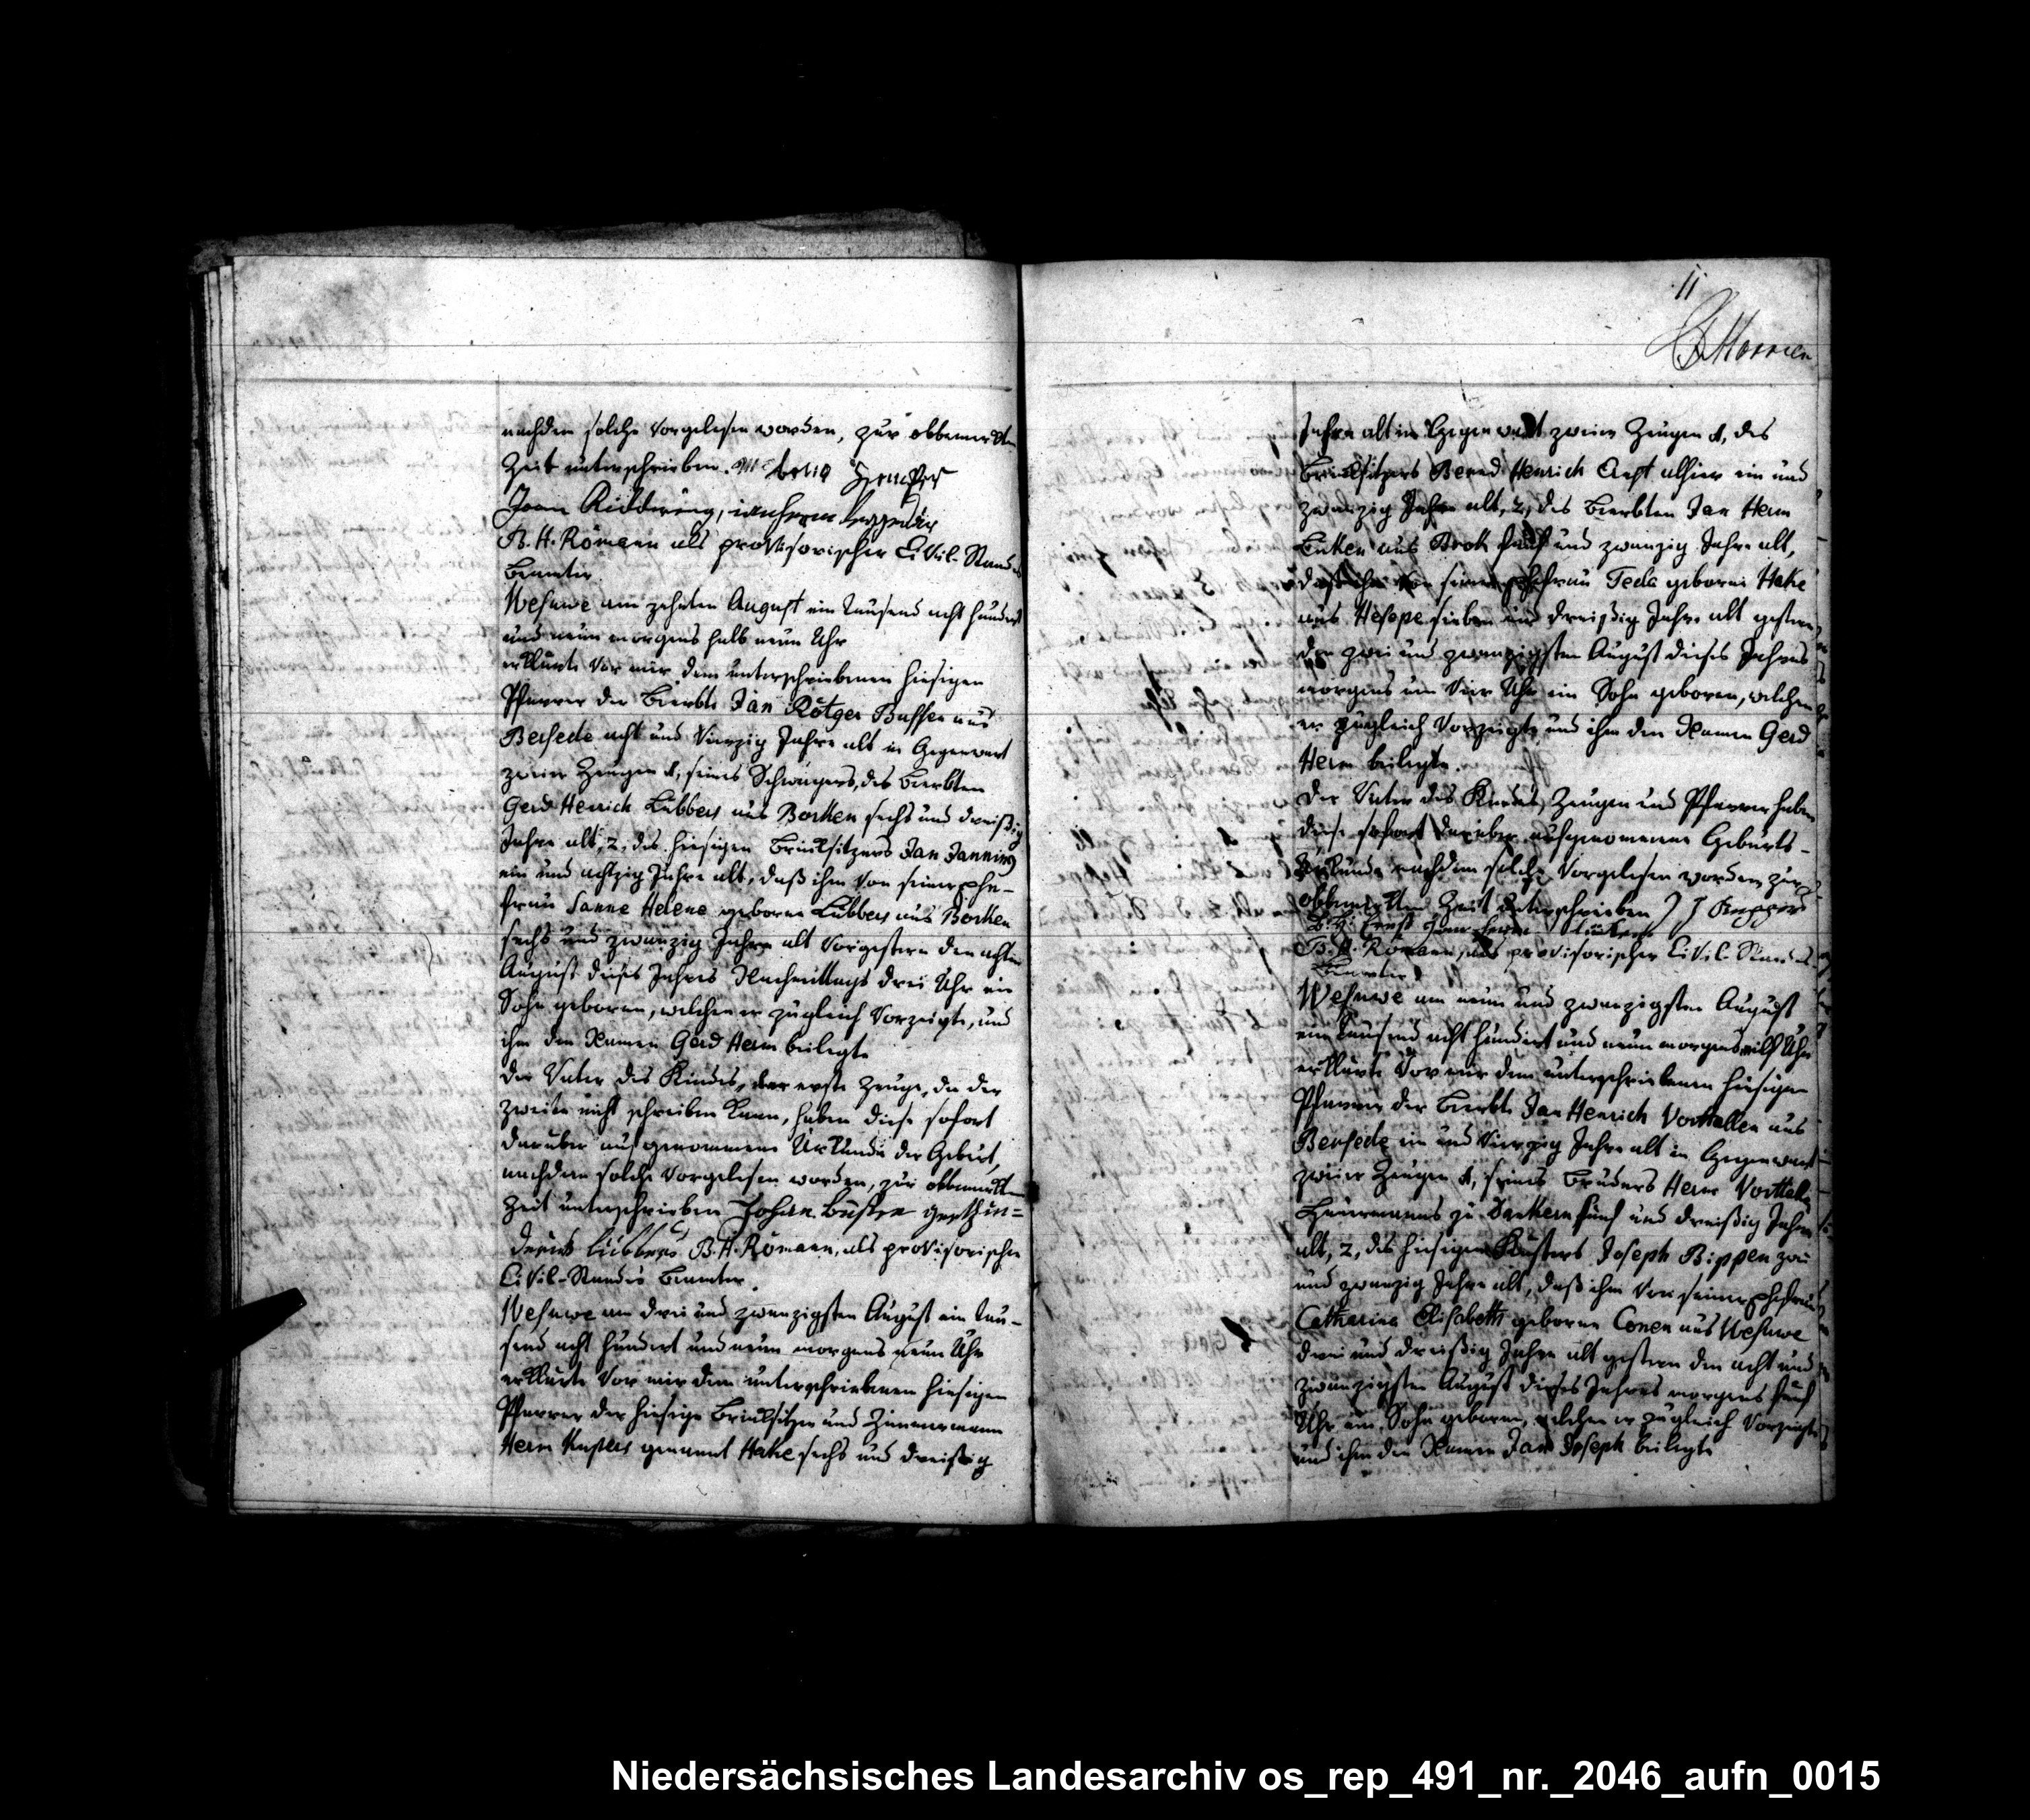 nachdem solche vorgelesen worden, zur obbemerkten
Zeit unterschrieben.
B. H. Römann als provisorischer Civil-Stands
Beamter
Wesuwe am zehnten August ein tausend acht hundert
und neun morgens halb neun Uhr
erklärte vor mir dem unterschriebenen hiesigen
Pfarrer der Beerbte Jan Rötger Bussen aus
Versede acht und vierzig Jahre alt in Gegenwart
zweier Zeugen 1, seines Schwagers, des Beerbten
Gerd Henrich Lübbers aus Borken sechs und dreißig
Jahre alt, 2, des hiesigen Brinksitzers Jan Janning
ein und achtzig Jahre alt, daß ihm von seiner Ehe-
frau Sanne Helene geborne Lübbers aus Borken
sechs und zwanzig Jahre alt vorgestern den achten
August dieses Jahres Nachmittags drei Uhr ein
Sohn geboren, welchen er zugleich vorzeigte, und
ihm den Namen Gerd Herm beilegte
Der Vater des Kindes, der erste Zeuge, da der
zweite nicht schreiben kann, haben diese sofort
darüber aufgenommene Urkunde der Geburt,
nachdem solche vorgelesen worden, zur obbemerkten
Zeit unterschrieben Johan Bussen gerth hin=
derick lübbers B. H. Römann, als provisorischer
Civil-Stands Beamter.
Wesuwe am drei und zwanzigsten August ein tau-
send acht hundert und neun morgens neun Uhr
erklärte vor mir dem unterschriebenen hiesigen
Pfarrer der hiesige Brinksitzer und Zimmermann
Herm Kupers genannt Hake sechs und dreißig
11
Jahre alt in Gegenwart zweier Zeugen 1, des
Brinksitzers Berend Henrich alhier ein und
zwanzig Jahre alt, 2, des Beerbten Jan Herm
aus fünf und zwanzig Jahre alt,
daß ihm von seiner Ehefrau Teda geborne Hake
aus Hesepe sieben und dreißig Jahre alt gestern
den zwei und zwanzigsten August dieses Jahres
morgens um vier Uhr ein Sohn geboren, welchen
er zugleich vorzeigte und ihm den Namen Gerd
Herm beilegte.
Der Vater des Kindes, Zeugen und Pfarrer haben
diese sofort darüber aufgenommene Geburts-
Urkunde nachdem solche vorgelesen worden, zur
obbemerkten Zeit unterschrieben
B. H. Römann, als provisorischer Civil-Stands
Beamter
Wesuwe am neun und zwanzigsten August
ein tausend acht hundert und neun morgens eilf Uhr
erklärte vor mir dem unterschriebenen hiesigen
Pfarrer der Beerbte Jan Henrich aus
Versede ein und vierzig Jahre alt in Gegenwart
zweier Zeugen 1, seines Bruders Herm
Heuermanns zu fünf und dreißig Jahre
alt, 2, des hiesigen Küsters Joseph Bippen zwei
und zwanzig Jahre alt, daß ihm von seiner Ehefrau
Catharina Elisabeth geborne Conen aus Wesuwe
drei und dreißig Jahre alt gestern den acht und
zwanzigsten August dieses Jahres morgens fünf
Uhr ein Sohn geboren, welchen er zugleich vorzeigte
und ihm den Namen Jan Joseph beilegte
Niedersächsisches Landesarchiv os_rep_491_nr._2046_aufn_0015